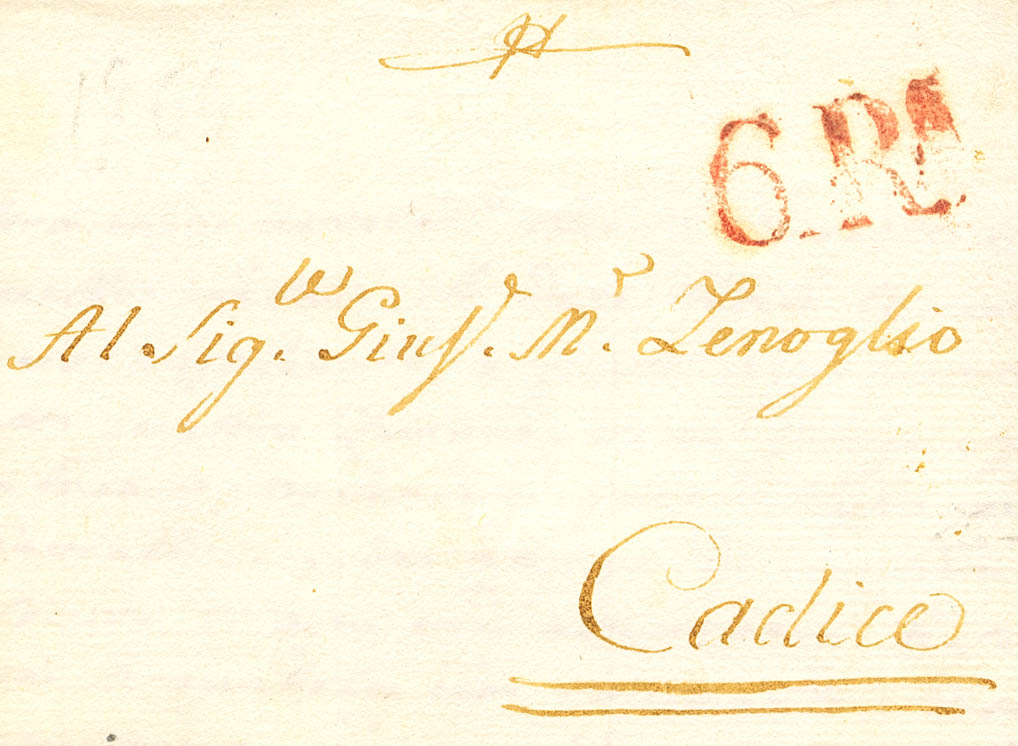 6.Rs.
Al Sig.re Giuse. M.r Zenoglio
Cadice